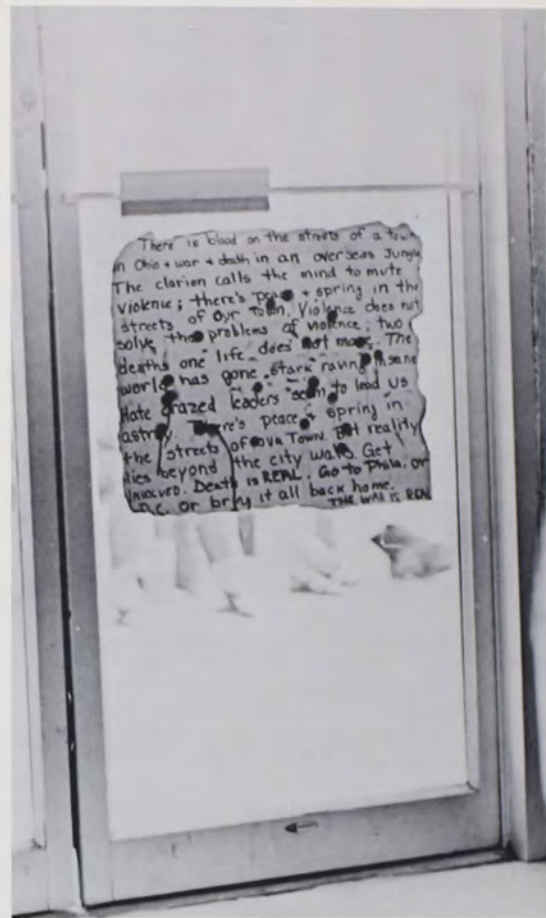 There is blood on the streets of a town
in Ohio + war + death in an overseas Jungle
The clarion calls the mind to mute
violence; there's peace + spring in the
streets of our Town. Violence does not
solve the problems of violence; two
deaths one life does not make. The
world has gone stark raving insane
Hate crazed leaders seem to lead us
astray. There's peace + spring in
the streets of OUR TOWN. But reality
lies beyond the city walls. Get
INVOLVED. Death is REAL. Go to Phila. or
D.C. or bring it all back home.
THE WAR IS REAL